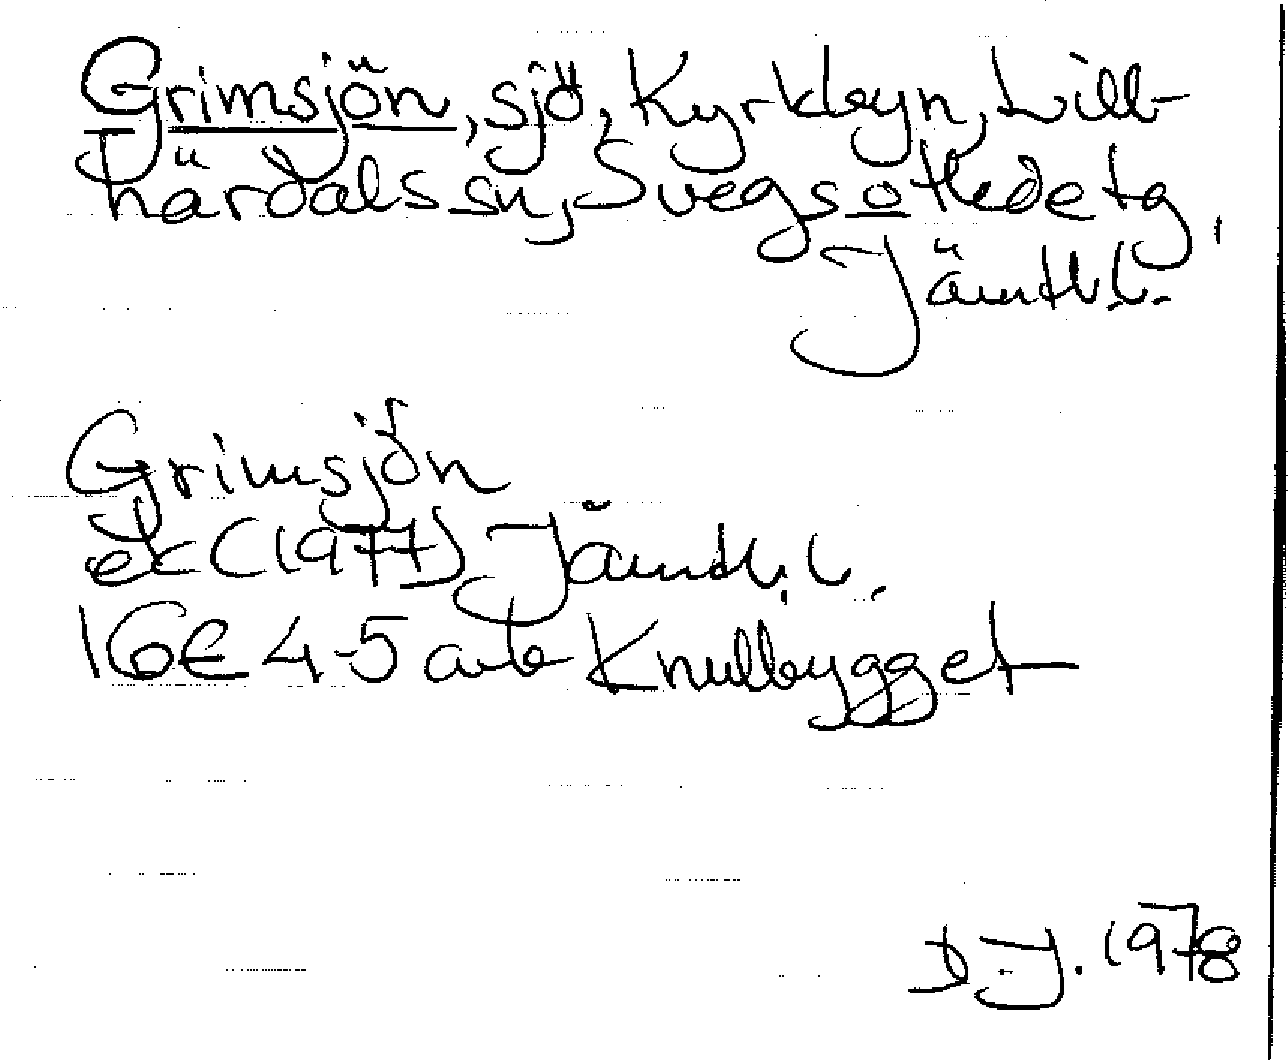 Grimsjön, sjö, Kyrkbyn, Lill-
härdals sn, Svegs o Hede tg,
Jämtl. l.
Grimsjön
ek (1977) Jämtl. l.
16E 4-5 a-b Knullbygget
D.J. 1978